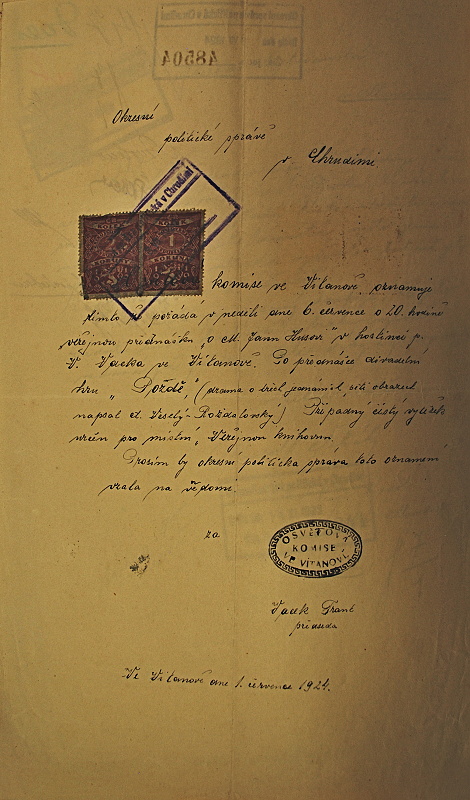 48504
Okresní
politické správě
v Chrudimi
v Chrudimi
KOLEK
KOLEK
1
KORUNA
komise ve Vítanově, oznamuje
tímto že pořádá v neděli dne 6. července o 20. hodině
veřejnou přednášku „o M. Janu Husovi" v hostinci p.
V. Vacka ve Vítanově. Po přednášce divadelní
hru „Pozdě" (drama o třech jednáních,
napsal Veselý - Rozdalovský.) Případný čistý výtěžek
určen pro místní, Veřejnou knihovnu.
Prosím by okresní politická správa toto oznámení
vzala na vědomí.
za
OSVĚTOVÁ
KOMISE
VE VÍTANOVĚ
Vacek Frant
předseda
Ve Vítanově dne 1. července 1924.